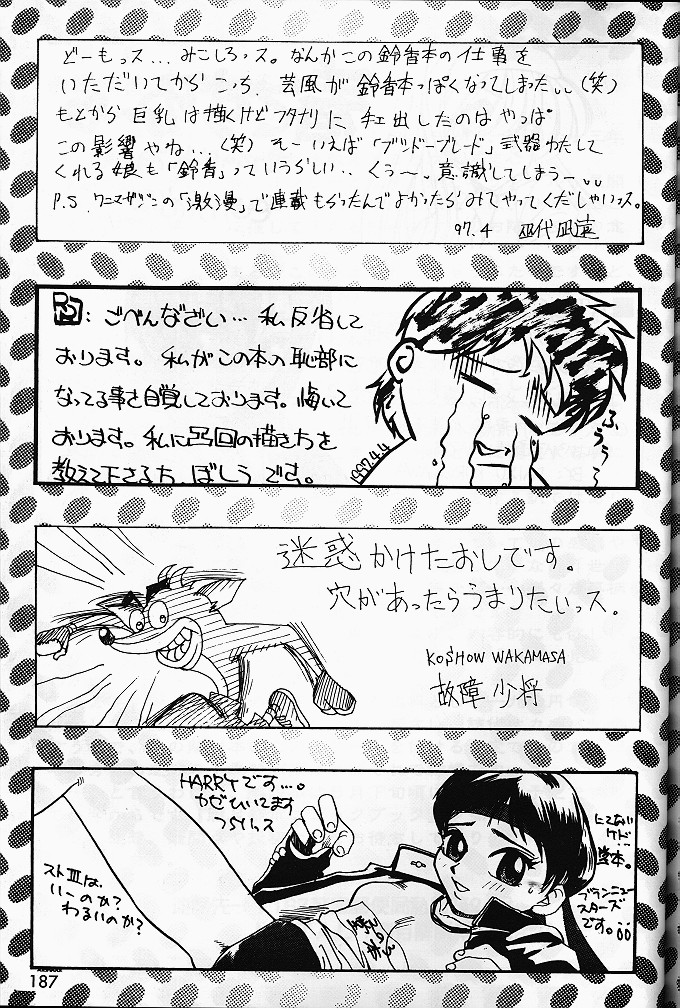 どーもっス…みこしろっス。なんかこの鈴香本の仕事を
いただいてからこっち、芸風が鈴香本っぽくなってしまった(笑)
もとから巨乳は描くけどフタナリにチェ出したのはやっぱ
この影響やね…(笑)そーいえば「ブシドーブレード」で武器わたして
くれる娘も「鈴香」っていうらしい…くう〜、意識してしまうー
P.S ワニマガジンの「激漫」で連載もらったんでよかったらみてやってくだしゃいっス。
97.4
ごべんなざい…私反省して
おります。私がこの本の恥部に
なってる事を自覚しております。悔いて
おります。私に凸凹の描き方を
教えて下さる方、ぼしうです。
1997.4.4
ふううぅ
迷惑かけたおしです。
穴があったらうまりたいっス。
KOSHOW WAKAMASA
故障少将
HARRYです…。
かぜひいてます
つらいっス
ストIIIは
いーのか?
わるいのか?
にてない
ケド
ブランニュー
スターズ
です。
187